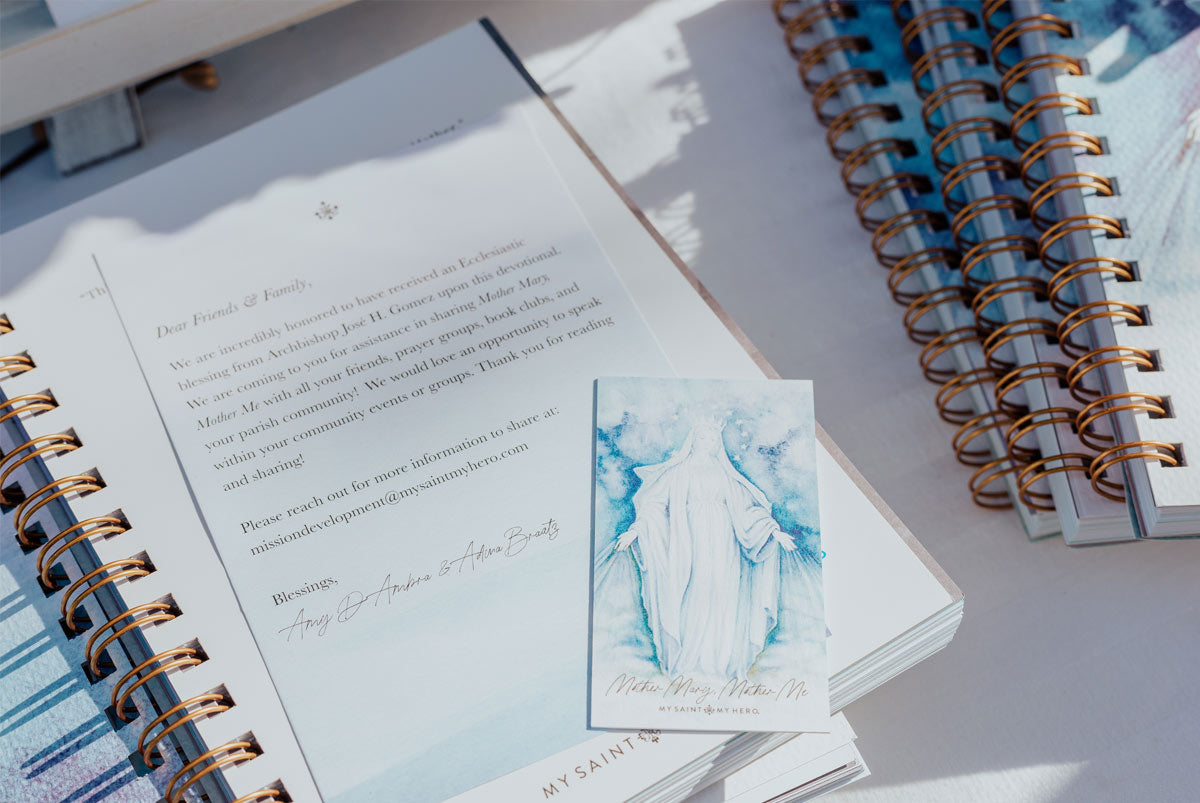 Mother."
"Th
Dear Friends & Family,
We are incredibly honored to have received an Ecclesiastic
blessing from Archbishop José H. Gomez upon this devotional.
We are coming to you for assistance in sharing Mother Mary,
Mother Me with all your friends, prayer groups, book clubs, and
your parish community! We would love an opportunity to speak
within your community events or groups. Thank you for reading
and sharing!
Please reach out for more information to share at:
missiondevelopment@mysaintmyhero.com
Blessings,
Amy D'Ambra & Adina Braatz
MY SAINT
Mother Mary, Mother Me
MY SAINT MY HERO